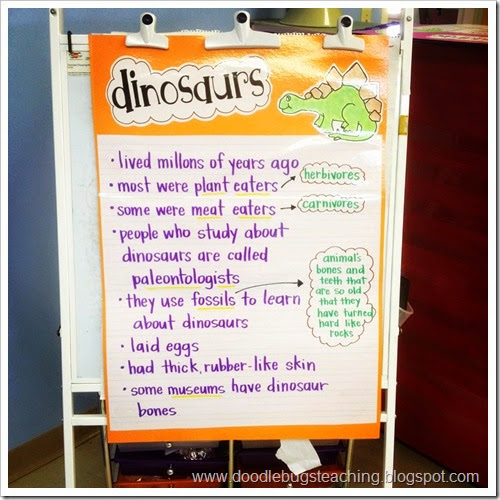 dinosaurs
• lived millons of years ago
• most were plant eaters
herbivores
• some were meat eaters
carnivores
• people who study about
dinosaurs are called
paleontologists
• they use fossils to learn
about dinosaurs
animal's
bones and
teeth that
are so old
that they
have turned
hard like
rocks
• laid eggs
• had thick, rubber-like skin
• some museums have dinosaur
bones
www.doodlebugsteaching.blogspot.com